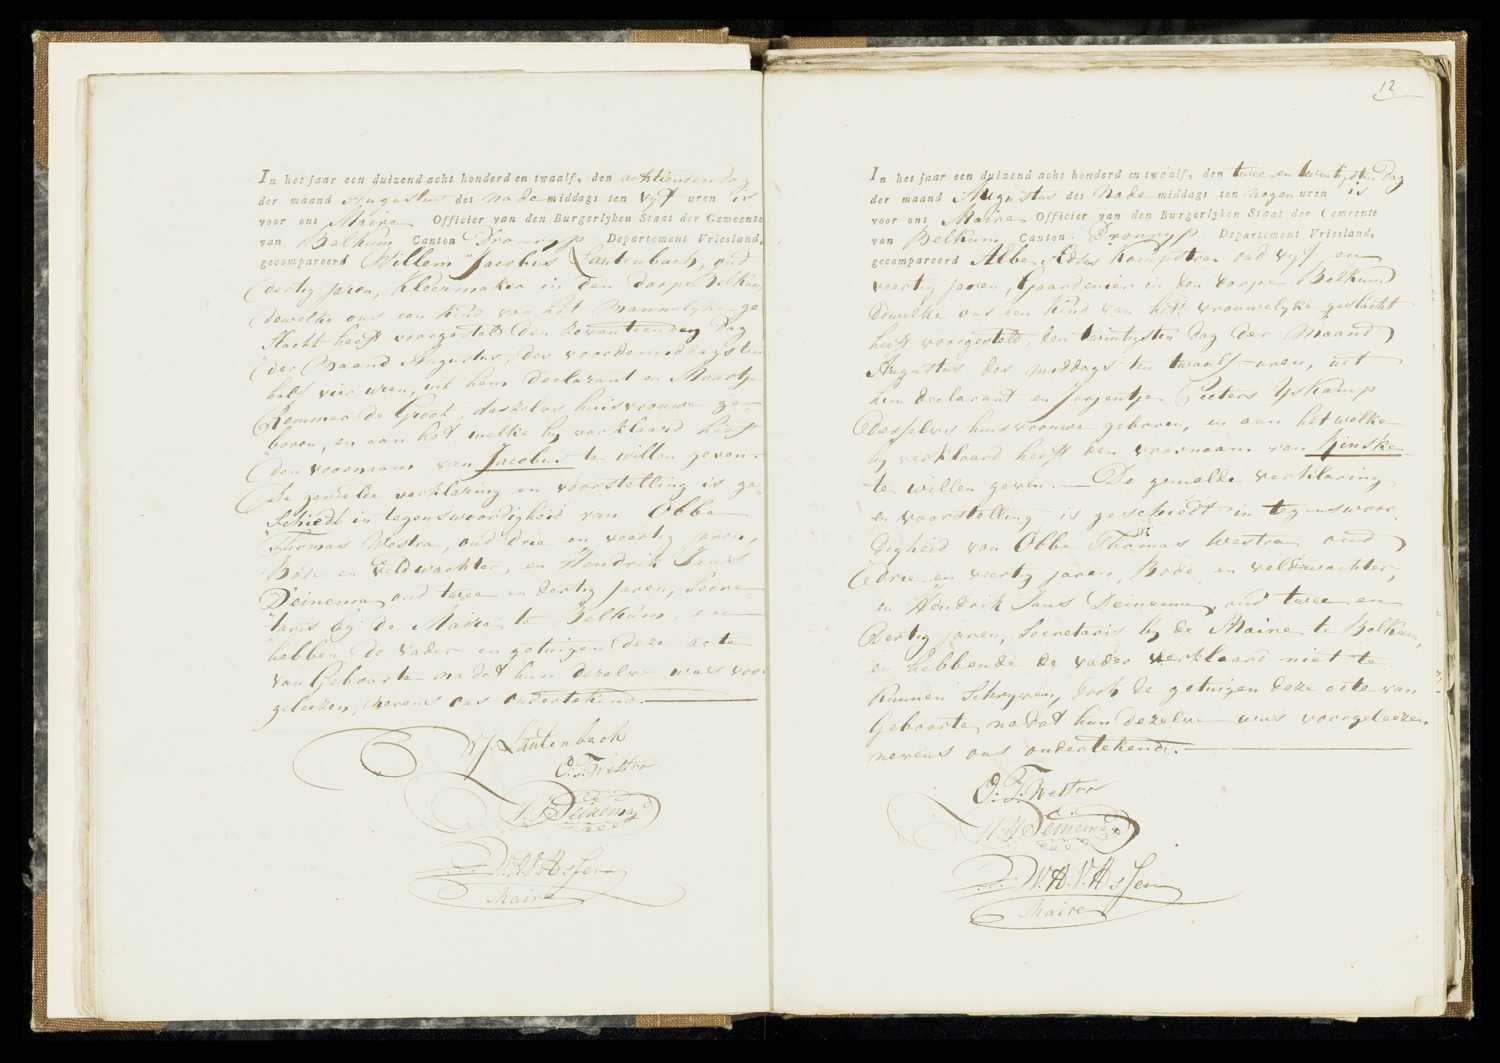 In het jaar een duizend acht honderd en twaalf, den achtienden dag
der maand Augustus des Nademiddags ten vijf uren is
voor ons Maire Officier van den Burgerlyken Staat der Gemeente
van Belkum Canton Dronryp Departement Vriesland,
gecompareerd Willem Jacobus Lautenbach, oud
dertig jaren, Kleermaker in den dorpe Belkum
dewelke ons een kind van het Mannelyke ge
slacht heeft voorgesteld den zeventienden dag
der Maand Augustus, des voordemiddags ten
half vier uren, uit hem declarant en Maartje
Remmer de Groot, deszelvs huisvrouwe ge-
boren, en aan het welke hy verklaard heeft
den voornaam van Jacobus te willen geven.
De gemelde verklaring en voorstelling is ge-
schiedt in tegenswoordigheid van Obbe
Thomas Westra, oud drie en veertig jaren,
Bode en Veldwachter, en Hendrik Jans
Deinema, oud twee en dertig jaren, Secre-
taris by de Maire te Belkum, en
hebben de vader en getuigen deze acte
van Geboorte na dat hun dezelve was voor
geleezen, nevens ons ondertekend.
W J Lautenbach
O. T. Westra
H. J. Deinema
D. W. A. V. Assen
Maire
12
In het jaar een duizend acht honderd en twaalf, den twee en twintigsten dag
der maand Augustus des Nademiddags ten negen uren is
voor ons Maire Officier van den Burgerlyken Staat der Gemeente
van Belkum Canton Dronryp Departement Vriesland,
gecompareerd Albe Kampstra oud vyf en
veertig jaren, Gaardenier in den dorpe Belkum
dewelke ons een kind van het vrouwelyke geslacht
heeft voorgesteld, den twintigsten dag der Maand
Augustus des middags ten twaalf uren, uit
hem declarant en Jeepentje Pieters Yskamp
deszelvs huisvrouwe geboren, en aan het welke
hy verklaard heeft den voornaam van Rinske
te willen geven. De gemelde verklaring
en voorstelling is geschiedt in tegenswoor-
digheid van Obbe Thomas Westra oud
drie en veertig jaren, Bode en veldwachter,
en Hendrik Jans Deinema, oud twee en
dertig jaren, Secretaris by de Maire te Belkum,
en hebbende de vader verklaard niet te
kunnen Schryven, doch de getuigen deze acte van
Geboorte, nadat hun dezelve was voorgeleezen,
nevens ons ondertekend.
O. T. Westra
H. J. Deinema
D. W. A. V. Assen
Maire